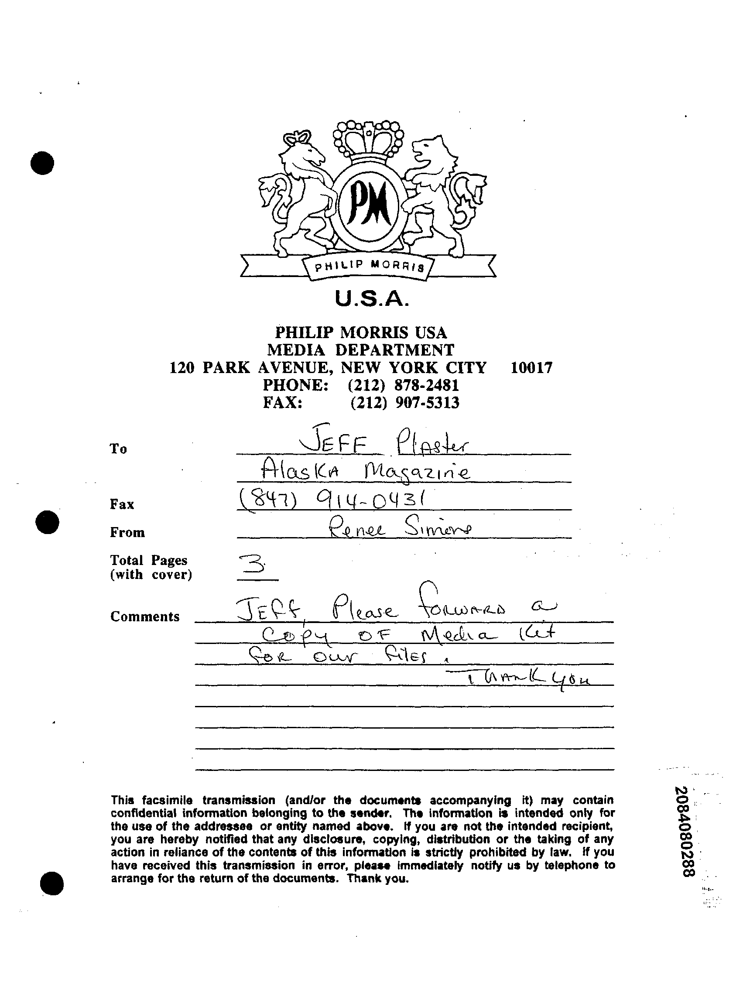 PM
PHILIP MORRIS
U.S.A.
PHILIP MORRIS USA
MEDIA DEPARTMENT
120 PARK AVENUE, NEW YORK CITY 10017
PHONE: (212) 878-2481
FAX: (212) 907-5313
To JEFF Plaster
Alaska Magazine
Fax (847) 914-0431
From Renee Simons
Total Pages
(with cover) 3
Comments JEFF, Please forward a
Copy OF Media Kit
for our files.
Thank you
This facsimile transmission (and/or the documents accompanying it) may contain
confidential information belonging to the sender. The information is intended only for
the use of the addressee or entity named above. If you are not the intended recipient,
you are hereby notified that any disclosure, copying, distribution or the taking of any
action in reliance of the contents of this information is strictly prohibited by law. If you
have received this transmission in error, please immediately notify us by telephone to
arrange for the return of the documents. Thank you.
2084080288